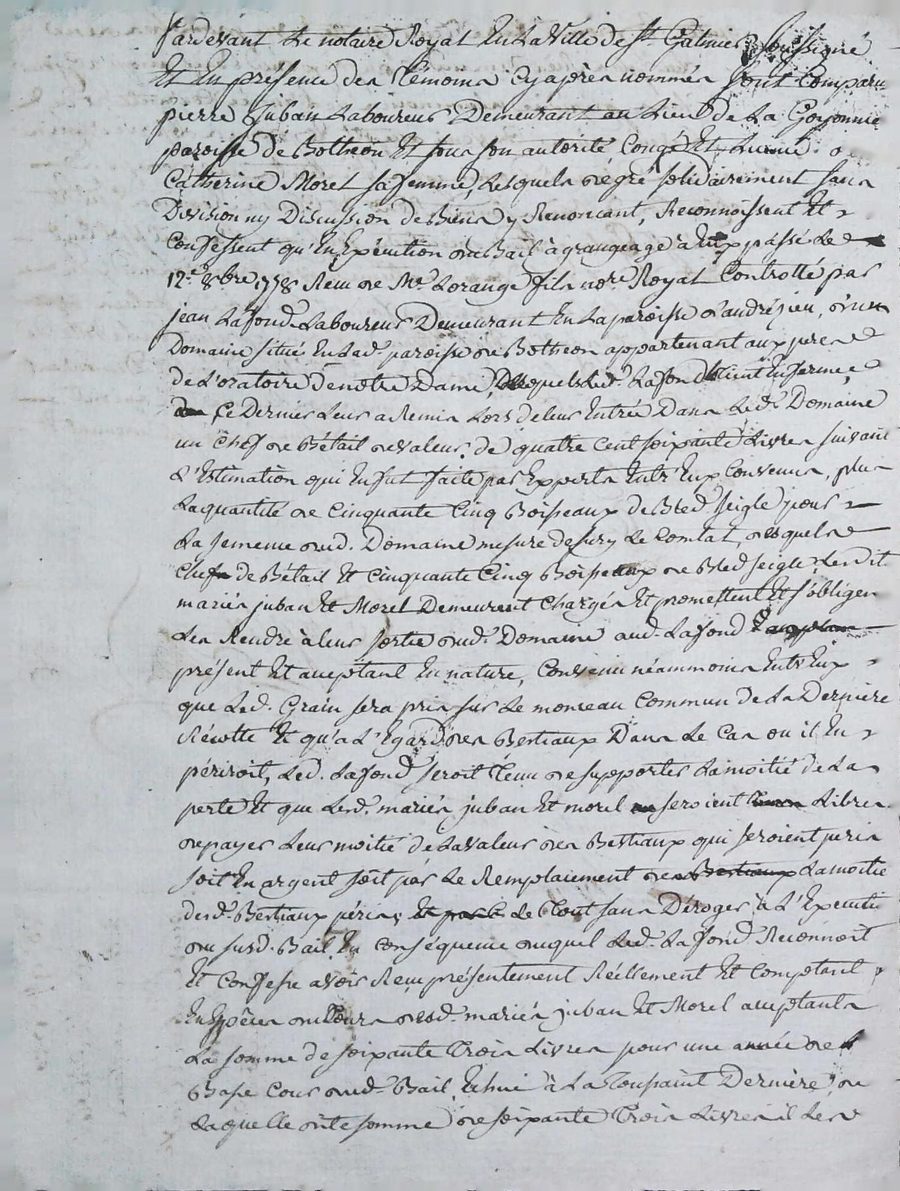 Pardevant Le notaire Royal En La Ville de St. Galmier Soussigné
Et En présence des Témoins Cy après nommés Sont Comparu
pierre Juban Laboureur Demeurant au Lieu de La Goyonnie
paroisse de Botheon Et sous son autorité Congé Et
Catherine Morel sa femme, Lesquels de gré solidairement sans
Division ny Discussion de Biens y Renoncant, Reconnoissent Et
Confessent qu'En Exécution du Bail à grangeage à Eux passé Le
12e. 8bre. 1758 Reçu de Me. Lorange fils nore. Royal Controllé par
jean Lafond Laboureur Demeurant En La paroisse d'andrézieu, d'un
Domaine situé En Lad. paroisse de Botheon appartenant aux peres
de L'oratoire de notre Dame, Led. Lafond tient En ferme,
Ce Dernier Leur a Remis Lors de leur Entrée Dans Led. Domaine
un Chef de Bétail de valeur de quatre cent soixante Livres suivant
L'Estimation qui En fut faite par Experts Entr'Eux Convenus, plus
La quantité de Cinquante Cinq Boisseaux de Bled seigle pour
La semence dud. Domaine mesure de Sury Le Comtal, desquels
Chefs de Bétail Et Cinquante Cinq Boisseaux de Bled seigle Lesdit
mariés juban Et Morel Demeurent Chargés Et promettent Et s'obligent
Les Rendre à leur sortie dud. Domaine aud. Lafond
présent Et acceptant En nature, Convenu néammoins Entr'Eux
que Led. Grain sera pris sur Le monceau Commun de La Dernière
Récolte Et qu'a L'Egard des Bestiaux Dans Le Cas ou il En
périroit, Led. Lafond seroit Tenu de supporter La moitié de La
perte Et que Lesd. mariés juban Et morel seroient Libres
de payer Leur moitié de La valeur des Bestiaux qui seroient peris
soit En argent soit par Le Remplaiement des Bestiaux La moitié
desd. Bestiaux péris, Et par Le Tout sans Déroger à L'Executi
du susd. Bail, En conséquence duquel Led. Lafond Reconnoit
Et Confesse avoir Reçu présentement Réellement Et Comptant
En Espèces du Cours desd. mariés juban Et Morel acceptants
La somme de soixante Trois Livres pour une année de
Basse Cour dud. Bail, Echue à La Toussaint Dernière, de
Laquelle ditte somme de soixante Trois Livres il Les